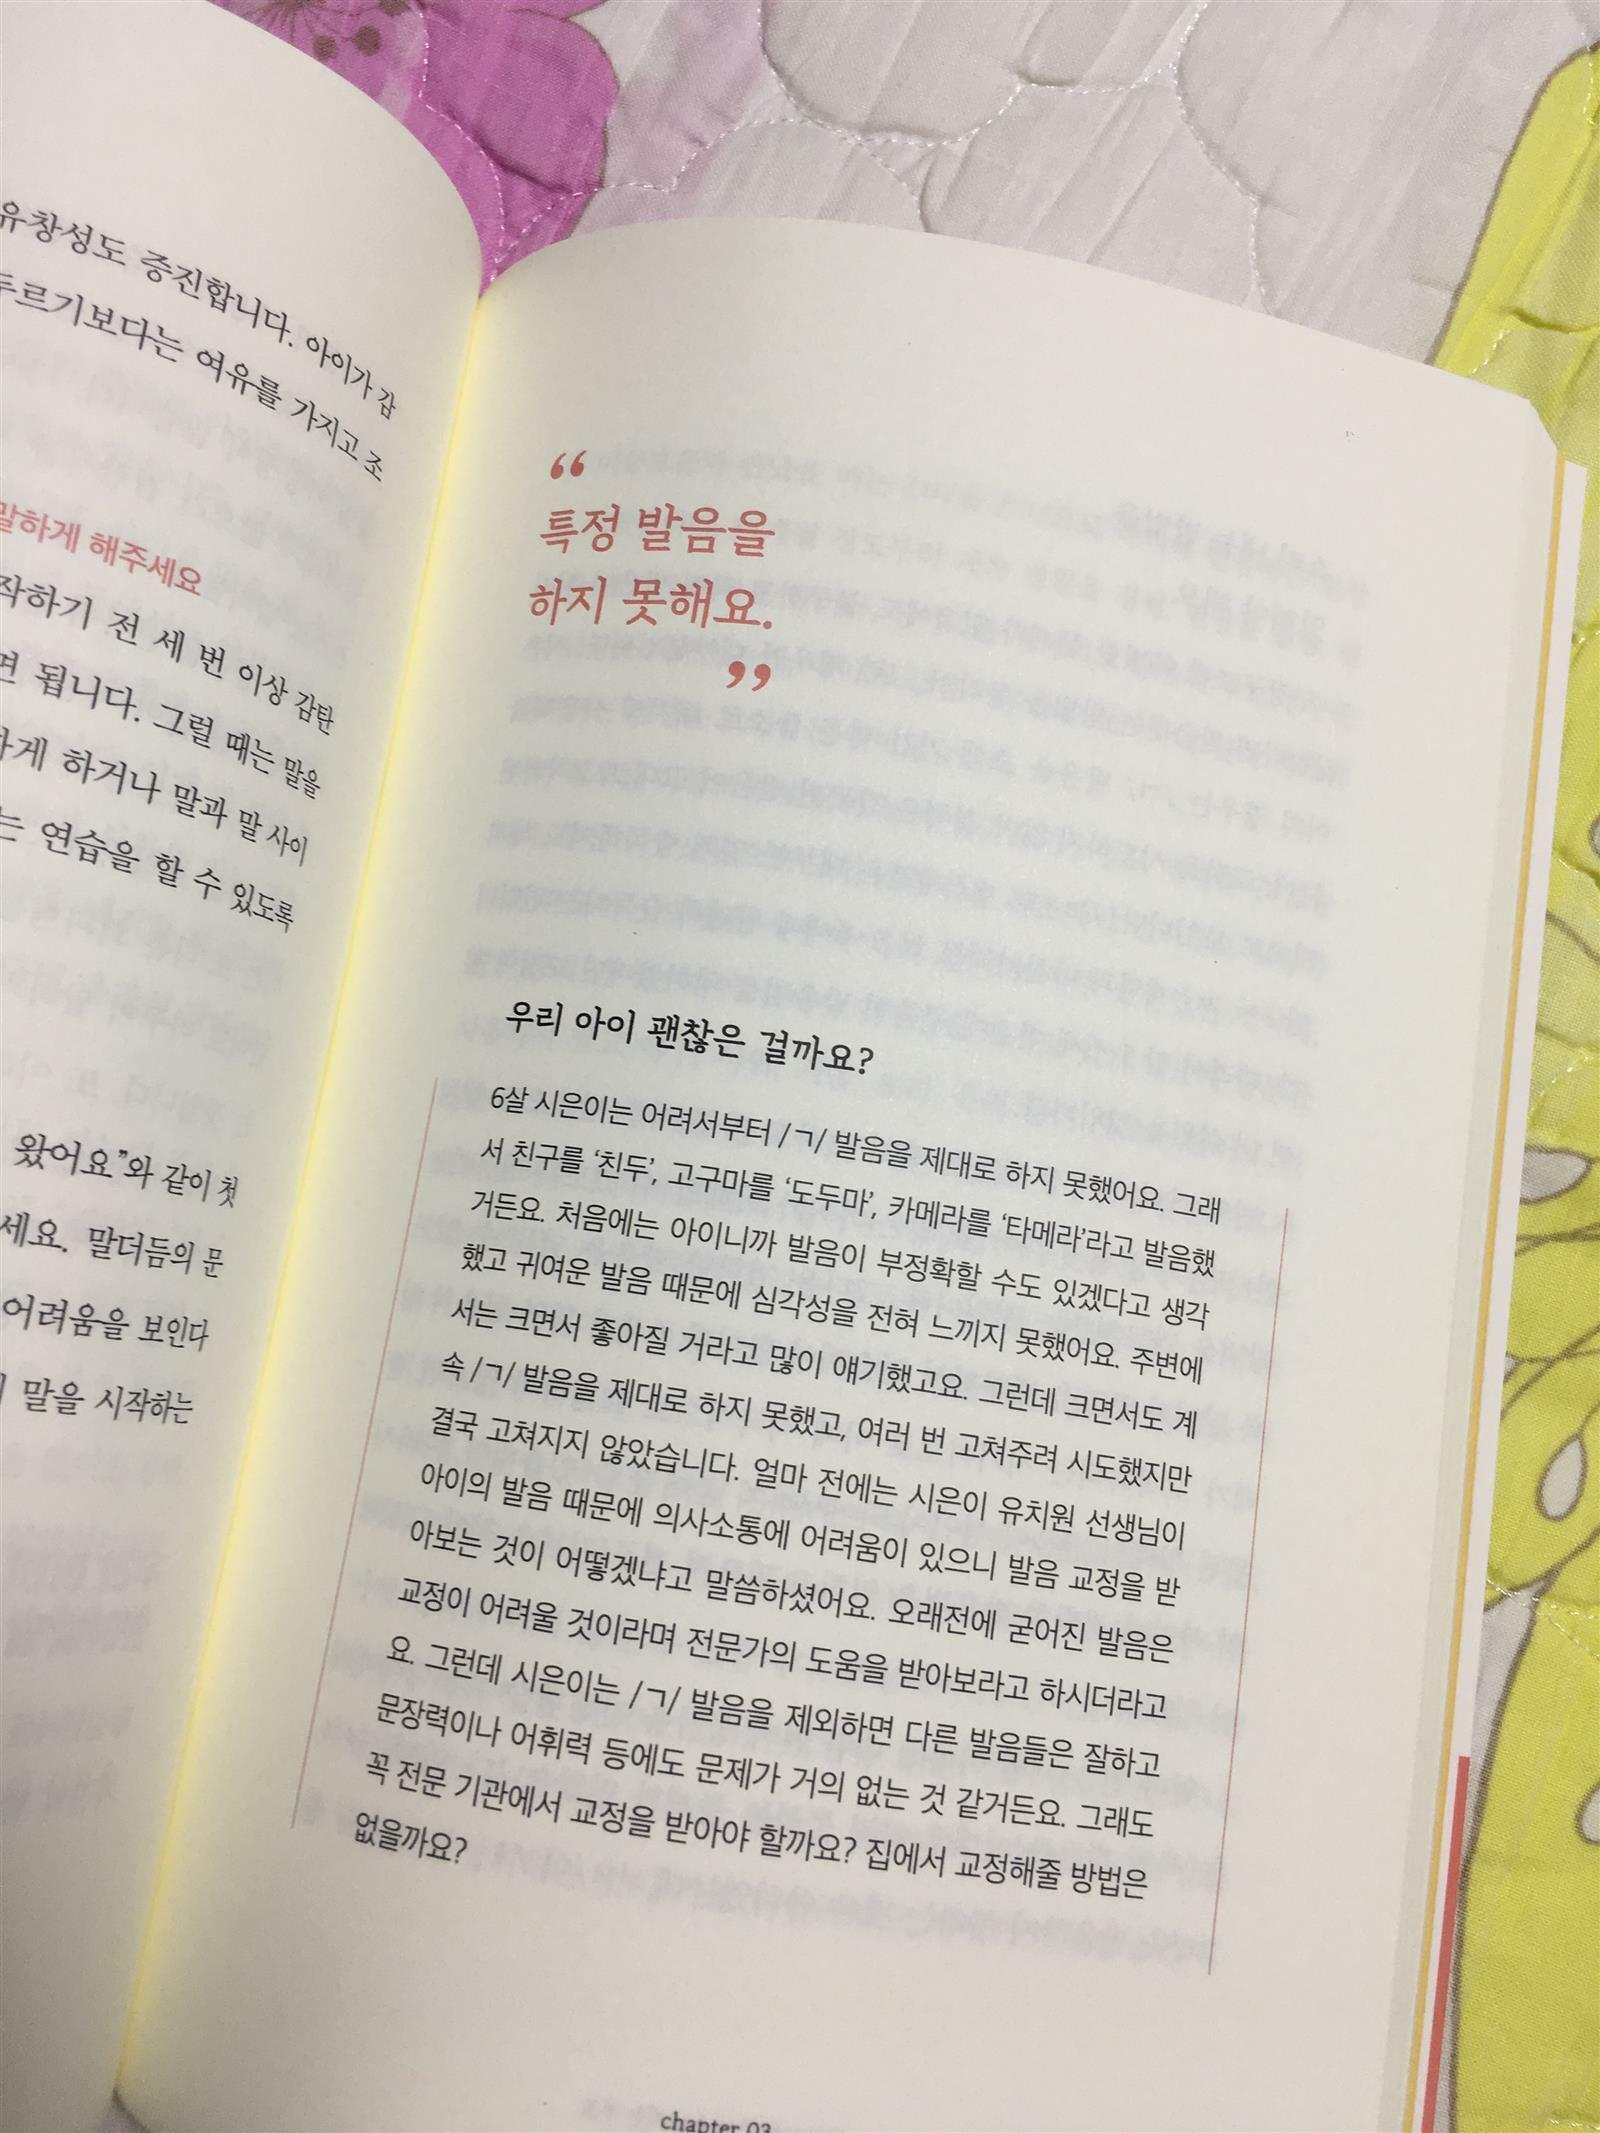 유창성도 증진합니다. 아이가 감
두르기보다는 여유를 가지고 조
말하게 해주세요
작하기 전 세 번 이상 감탄
면 됩니다. 그럴 때는 말을
하게 하거나 말과 말 사이
는 연습을 할 수 있도록
왔어요”와 같이 첫
세요. 말더듬의 문
어려움을 보인다
말을 시작하는
“
특정 발음을
하지 못해요.
”
우리 아이 괜찮은 걸까요?
6살 시은이는 어려서부터 /ㄱ/ 발음을 제대로 하지 못했어요. 그래
서 친구를 ‘친두’, 고구마를 ‘도두마’, 카메라를 ‘타메라’라고 발음했
거든요. 처음에는 아이니까 발음이 부정확할 수도 있겠다고 생각
했고 귀여운 발음 때문에 심각성을 전혀 느끼지 못했어요. 주변에
서는 크면서 좋아질 거라고 많이 얘기했고요. 그런데 크면서도 계
속 /ㄱ/ 발음을 제대로 하지 못했고, 여러 번 고쳐주려 시도했지만
결국 고쳐지지 않았습니다. 얼마 전에는 시은이 유치원 선생님이
아이의 발음 때문에 의사소통에 어려움이 있으니 발음 교정을 받
아보는 것이 어떻겠냐고 말씀하셨어요. 오래전에 굳어진 발음은
교정이 어려울 것이라며 전문가의 도움을 받아보라고 하시더라고
요. 그런데 시은이는 /ㄱ/ 발음을 제외하면 다른 발음들은 잘하고
문장력이나 어휘력 등에도 문제가 거의 없는 것 같거든요. 그래도
꼭 전문 기관에서 교정을 받아야 할까요? 집에서 교정해줄 방법은
없을까요?
chapter 03